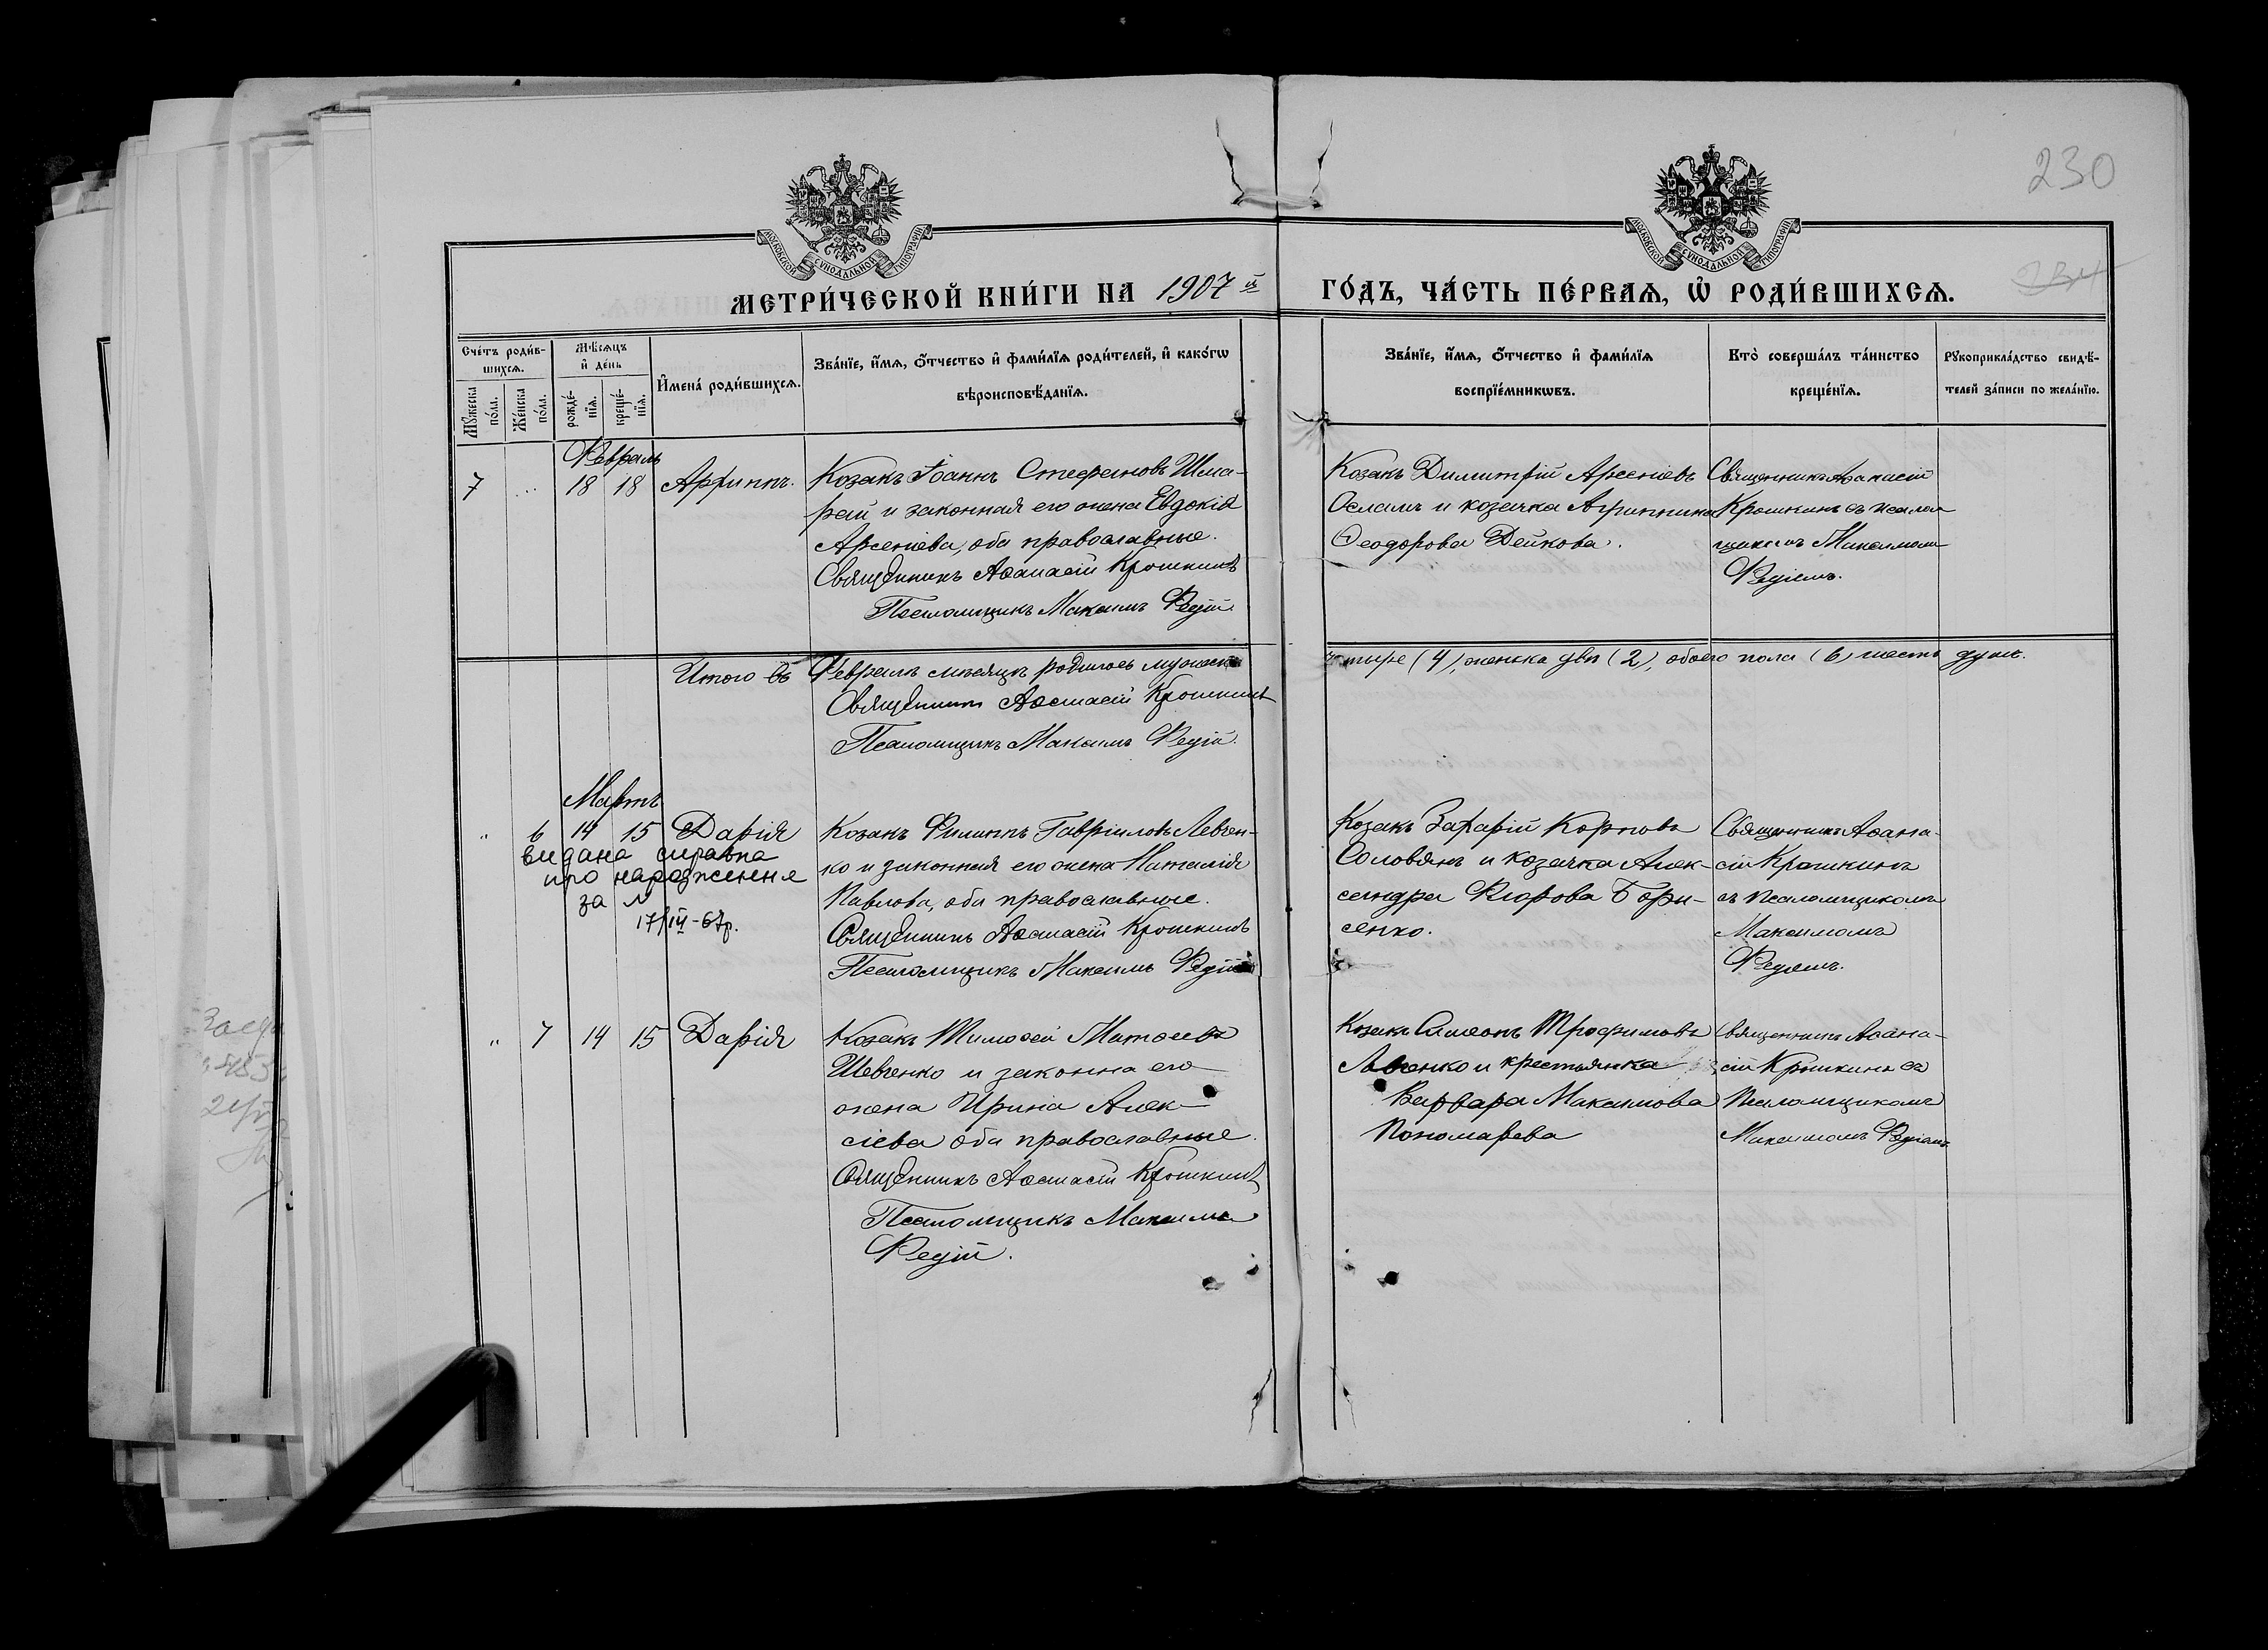 230
МОСКОВСКОЙ СУНОДАЛЬНОЙ ТИПОГРАФІИ
МОСКОВСКОЙ СУНОДАЛЬНОЙ ТИПОГРАФІИ
МЕТРИ́ЧЕСКОЙ КНИ́ГИ НА 1907 й
ГО́ДЪ, ЧА́СТЬ ПЕ́РВАѦ, Ѽ РОДИ́ВШИХСѦ.
234
Сче́тъ роди́в-
шихсѧ.
Мѣ́сѧцъ
и҆ де́нь
Мꙋ́жеска
по́ла.
Же́нска
по́ла.
рожде́-
нїѧ.
креще́-
нїѧ.
И҆мена́ роди́вшихсѧ.
Зва́нїе, и҆́мѧ, ѻ҆́тчество и҆ фами́лїѧ роди́телей, и҆ како́гѡ
вѣроисповѣ́данїѧ.
Зва́нїе, и҆́мѧ, ѻ҆́тчество и҆ фами́лїѧ
воспрїе́мникѡвъ.
Кто̀ соверша́лъ та́инство
креще́нїѧ.
Рꙋкоприкла́дство свидѣ́-
телей за́писи по жела́нїю.
Февраль
7 18 18
Козакъ Іоаннъ Стефановъ Шма-
рай и законная его жена Евдокія
Арсеніева, оба православные.
Священникъ Аѳанасій Крошкинъ
Псаломщикъ Максимъ Редій
Козакъ Димитрій Арсеніевъ
и козачка Агриппина
Ѳеодорова Дейкова.
Священникъ Аѳанасій
Крошкинъ съ псалом
щикомъ Максимомъ
Редіемъ.
Итого въ Февралѣ мѣсяцѣ родилось мужеска
четыре (4), женска двѣ (2), обоего пола (6) шесть душъ.
Священникъ Аѳанасій Крошкинъ
Псаломщикъ Максимъ Редій.
Мартъ
" 6 14 15 Дарія
видана справка
про народження
за №
17/III-67р.
Козакъ Филиппъ Гавріиловъ Левчен-
ко и законная его жена Наталія
Павлова, оба православные.
Священникъ Аѳанасій Крошкинъ
Псаломщикъ Максимъ Редій
Козакъ Захарій Карповъ
Соловянъ и козачка Алек-
сандра Бори-
сенко.
Священникъ Аѳана-
сій Крошкинъ
съ Псаломщикомъ
Максимомъ
Редіемъ.
" 7 14 15 Дарія
Козакъ Тимоѳей Матѳеевъ
Шевченко и законна его
жена Ирина Алек-
сіева оба православные.
Священникъ Аѳанасій Крошкинъ
Псаломщикъ Максимъ
Редій.
Козакъ Симеонъ Трофимовъ
Левченко и крестьянка
Варвара Максимова
Пономарева
Священникъ Аѳана-
сій Крошкинъ съ
Псаломщикомъ
Максимомъ Редіемъ